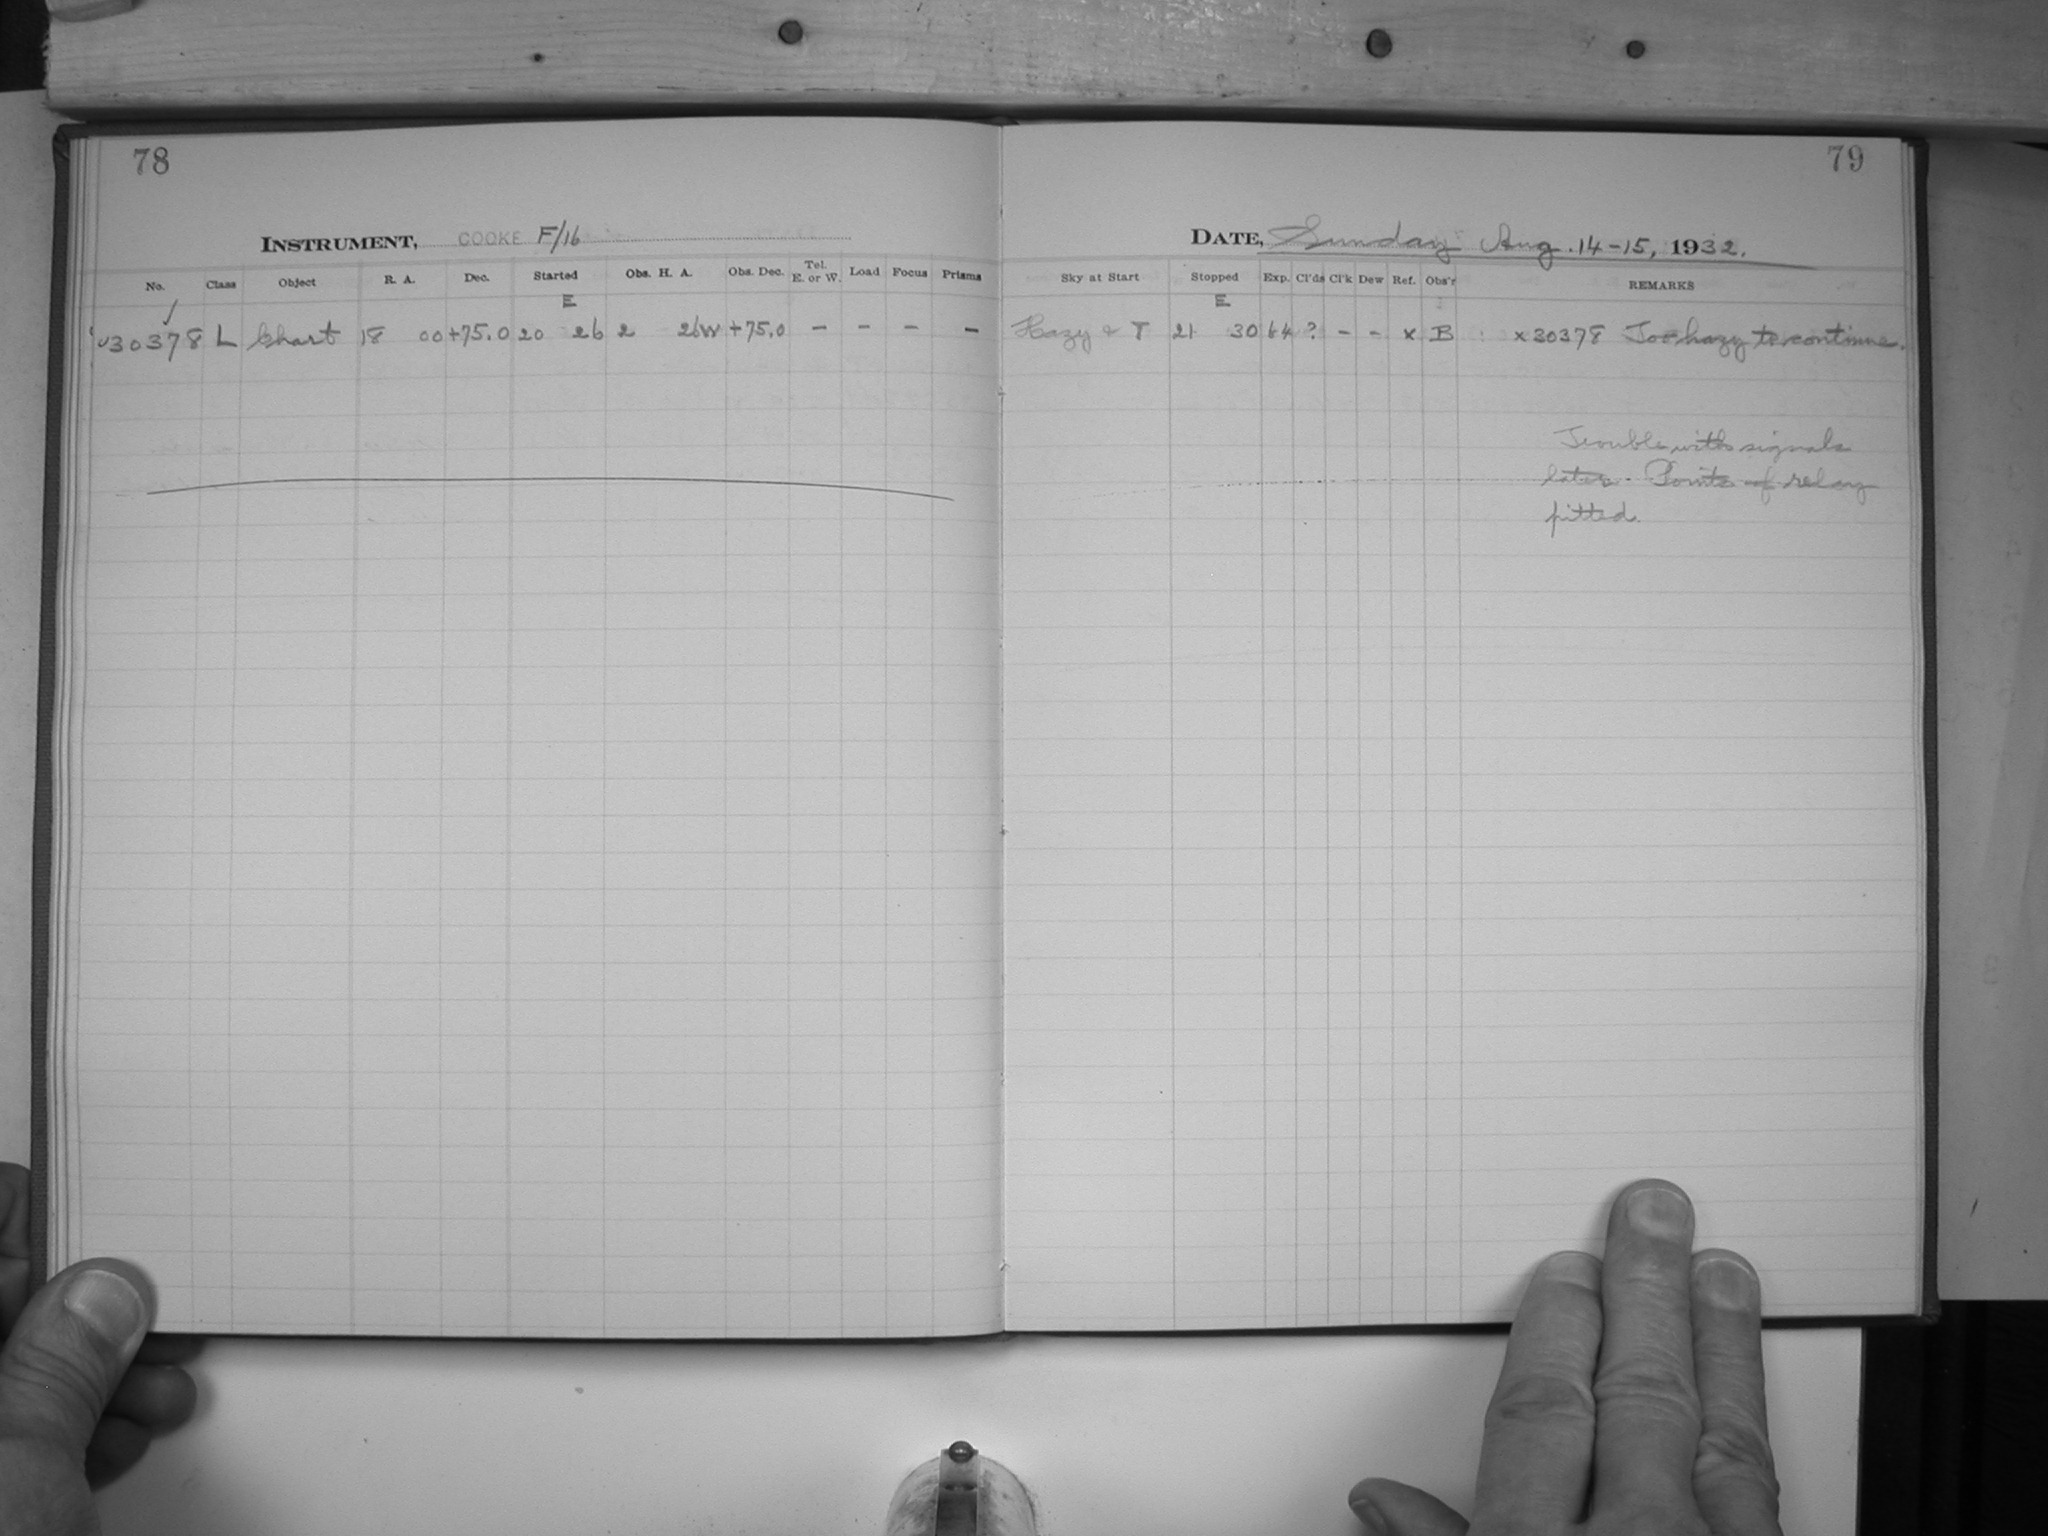 78
INSTRUMENT, COOKE F/16
No. Class Object R. A. Dec. Started Obs. H. A. Obs. Dec. Tel. E. or W. Load Focus Prisms
E
30378 L Chart 18 00 +75.0 20 26 2 26W +75.0 - - - -
79
DATE, Sunday Aug. 14-15, 1932.
Sky at Start Stopped Exp. Cl'ds Cl'k Dew Ref. Obs'r REMARKS
E
Hazy & T 21 30 64 ? - - x B x30378 Too hazy to continue.
Trouble with signals
later. Points of relay
pitted.